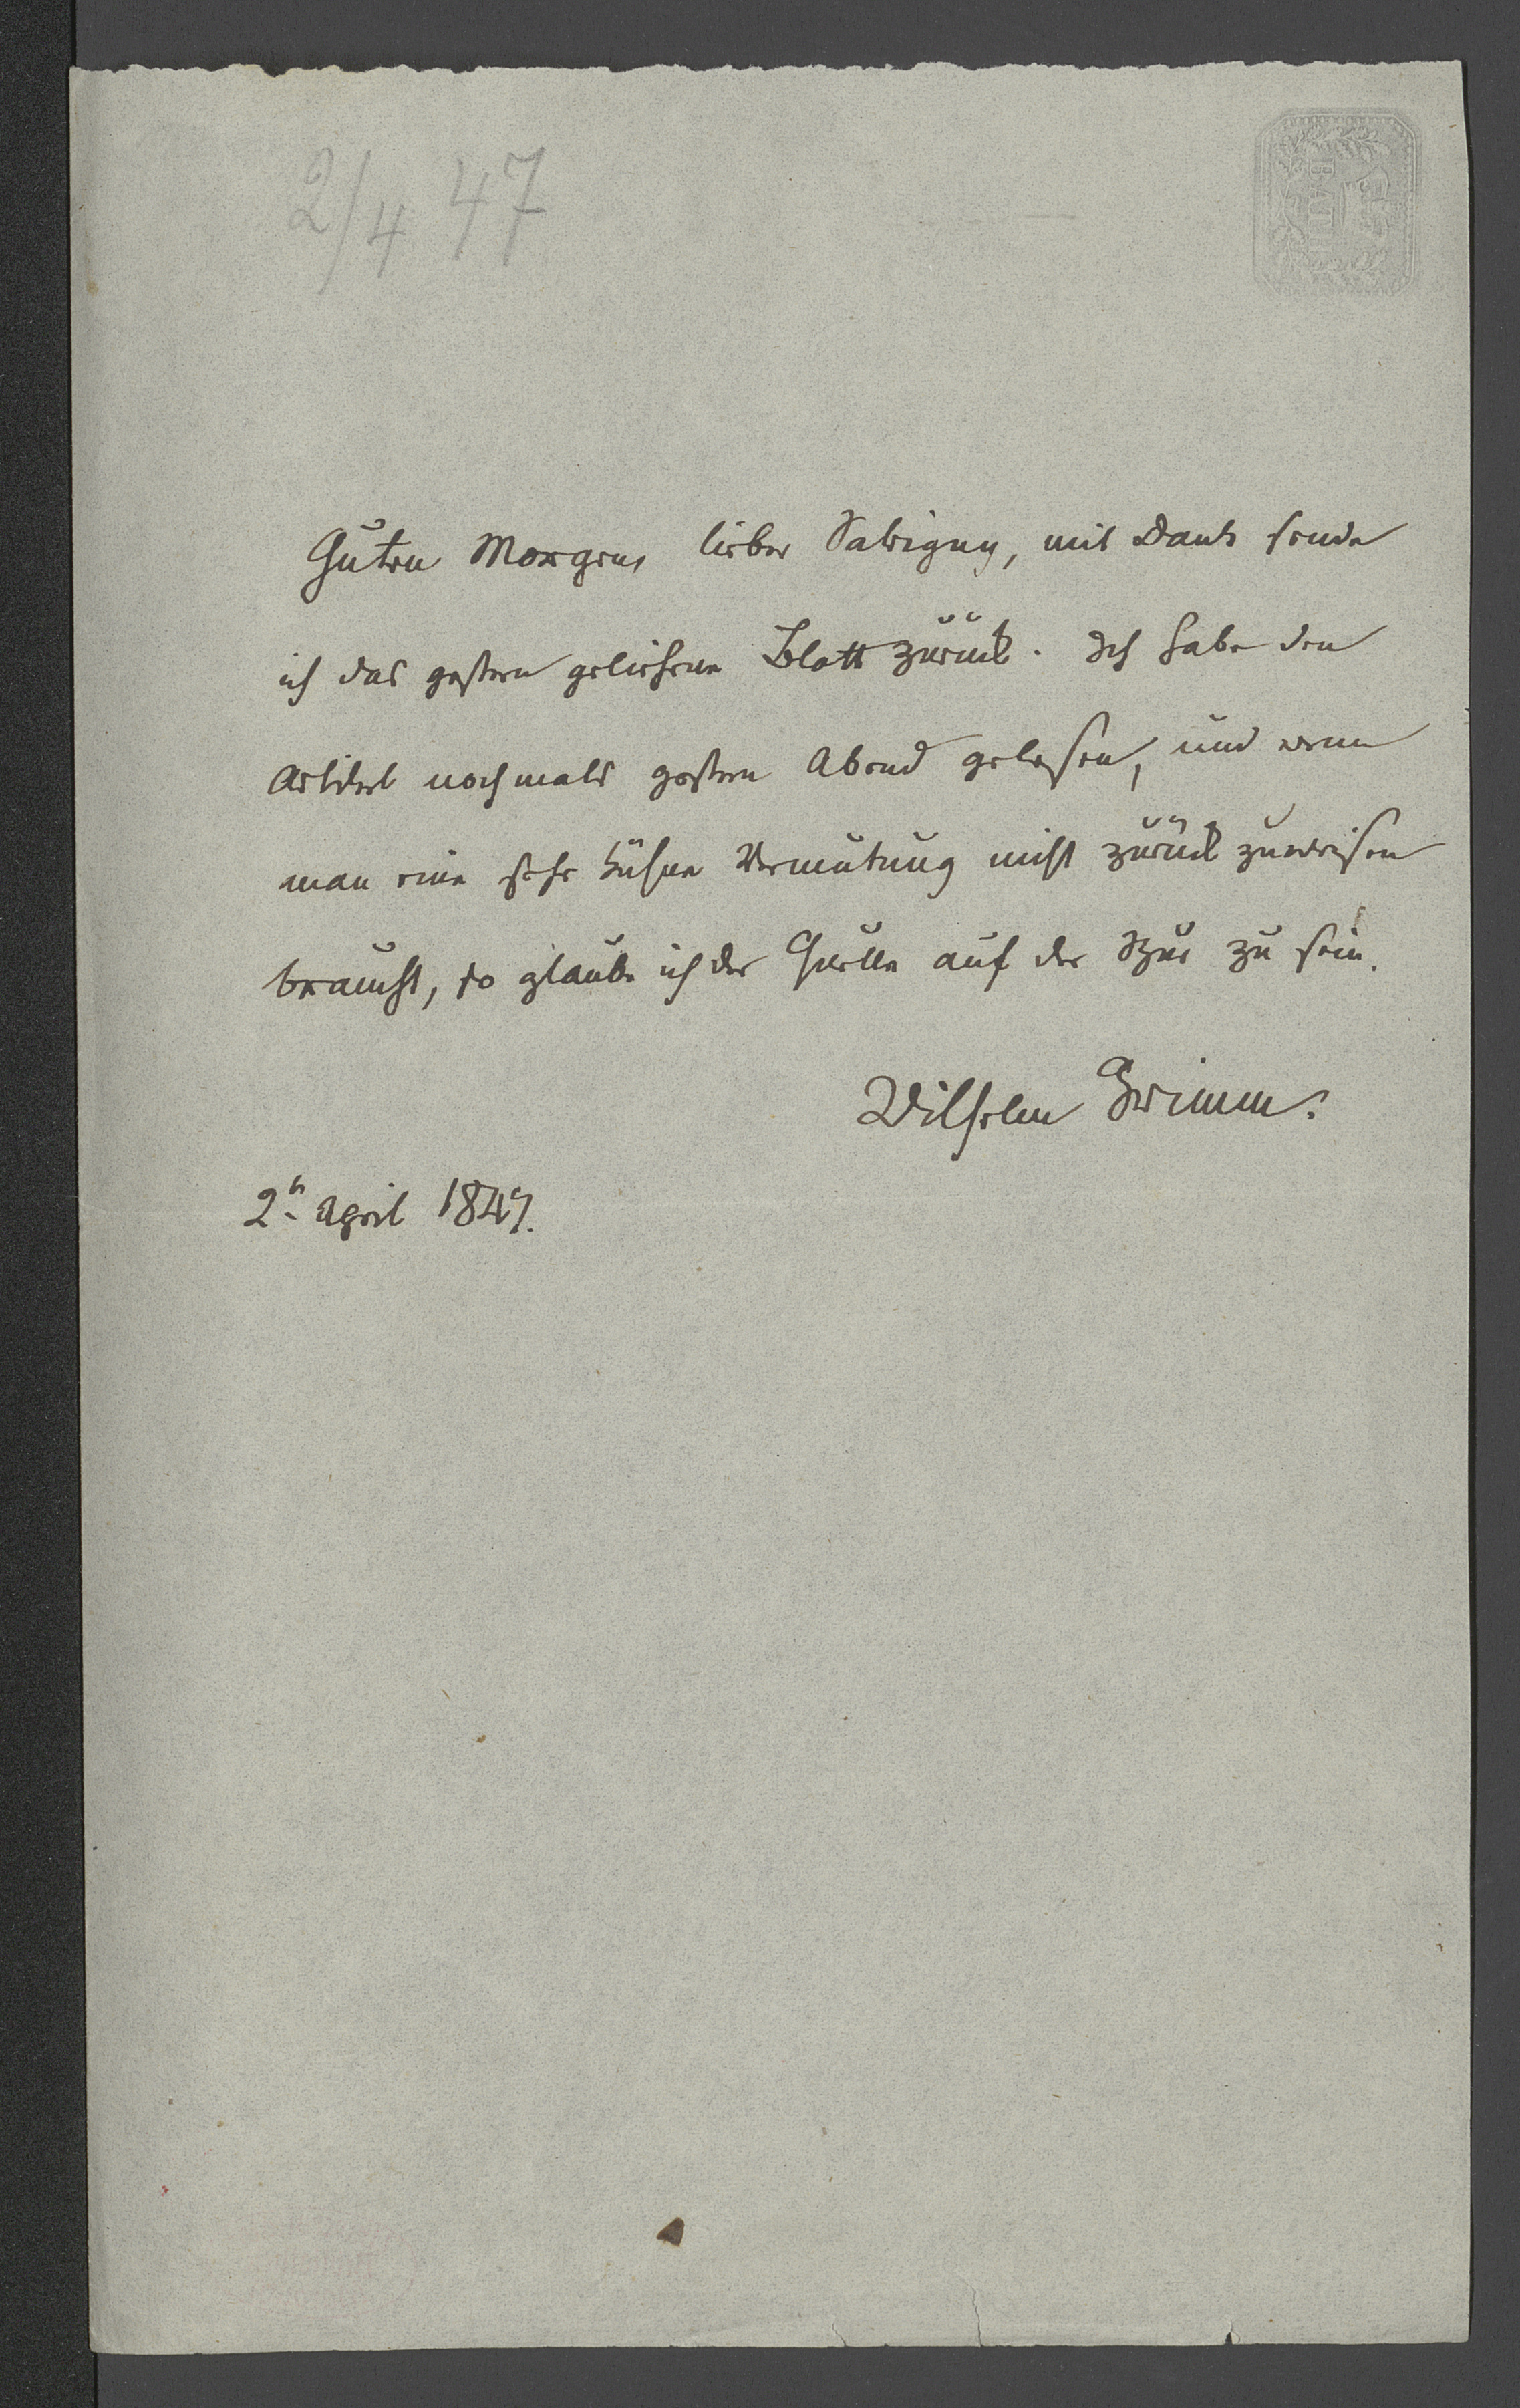 2/4 47
BATH
Guten Morgens lieber Savigny, mit Dank sende
ich das gestern geliehene Blatt zurück. Ich habe den
Artikel nochmals gestern Abend gelesen, und wenn
man eine sehr kühne Vermutung nicht zurück zuweisen
braucht, so glaube ich der Quelle auf der Spur zu sein.
Wilhelm Grimm.
2n April 1847.